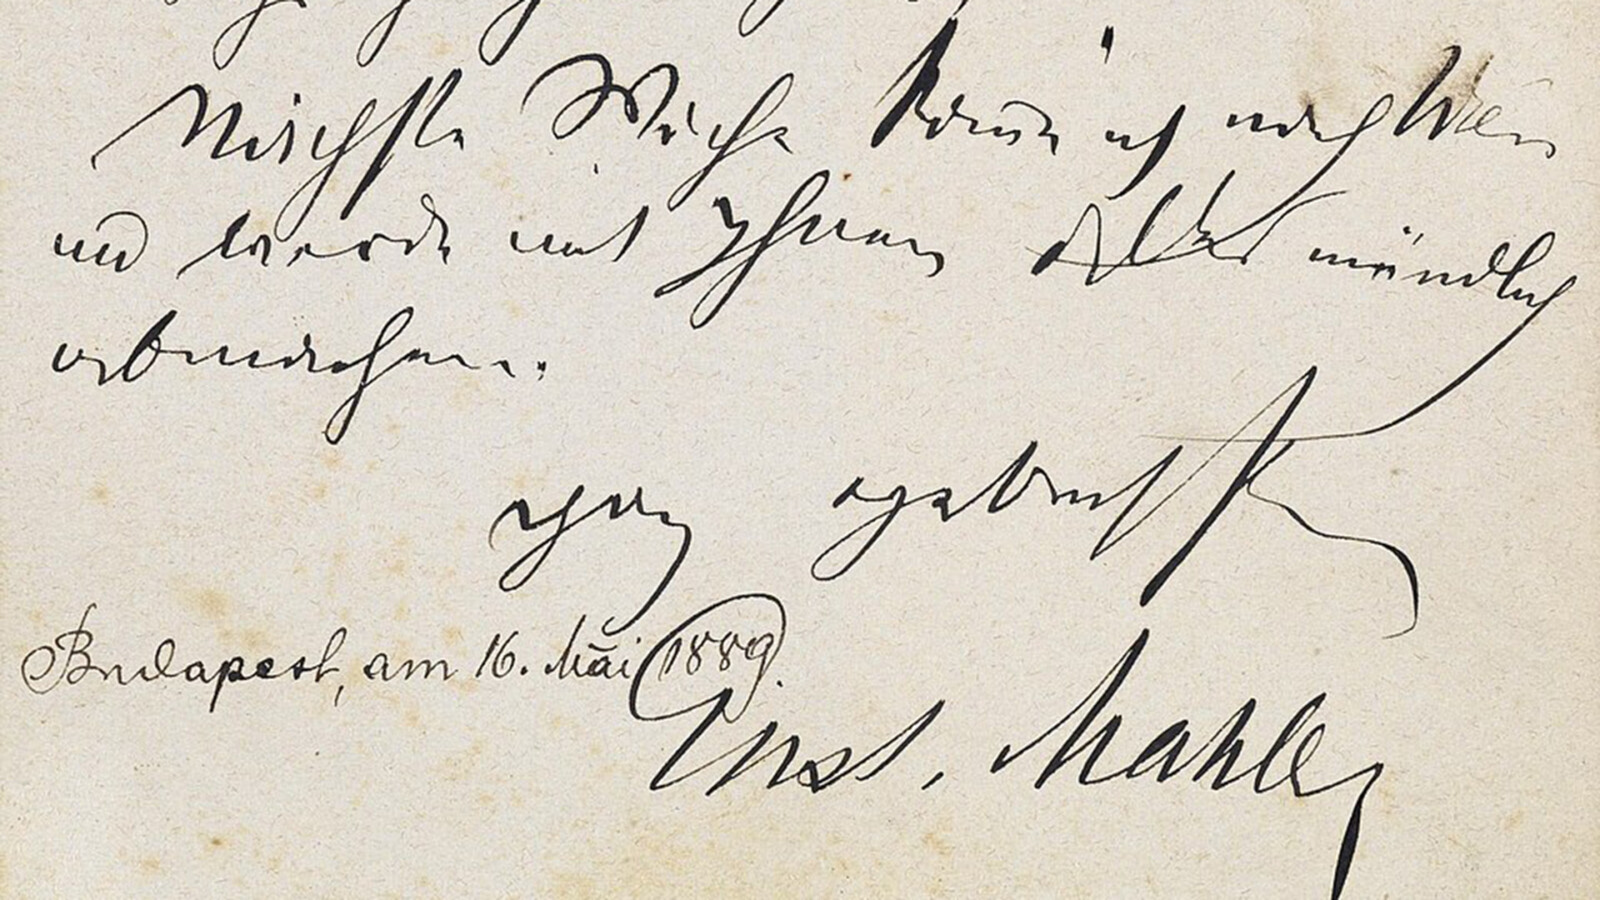 Nächste Woche komme ich nach Wien
und werde mit Ihnen Alles mündlich
abmachen.
Ganz ergebenst
Budapest, am 16. Mai 1889.
Gust. Mahler